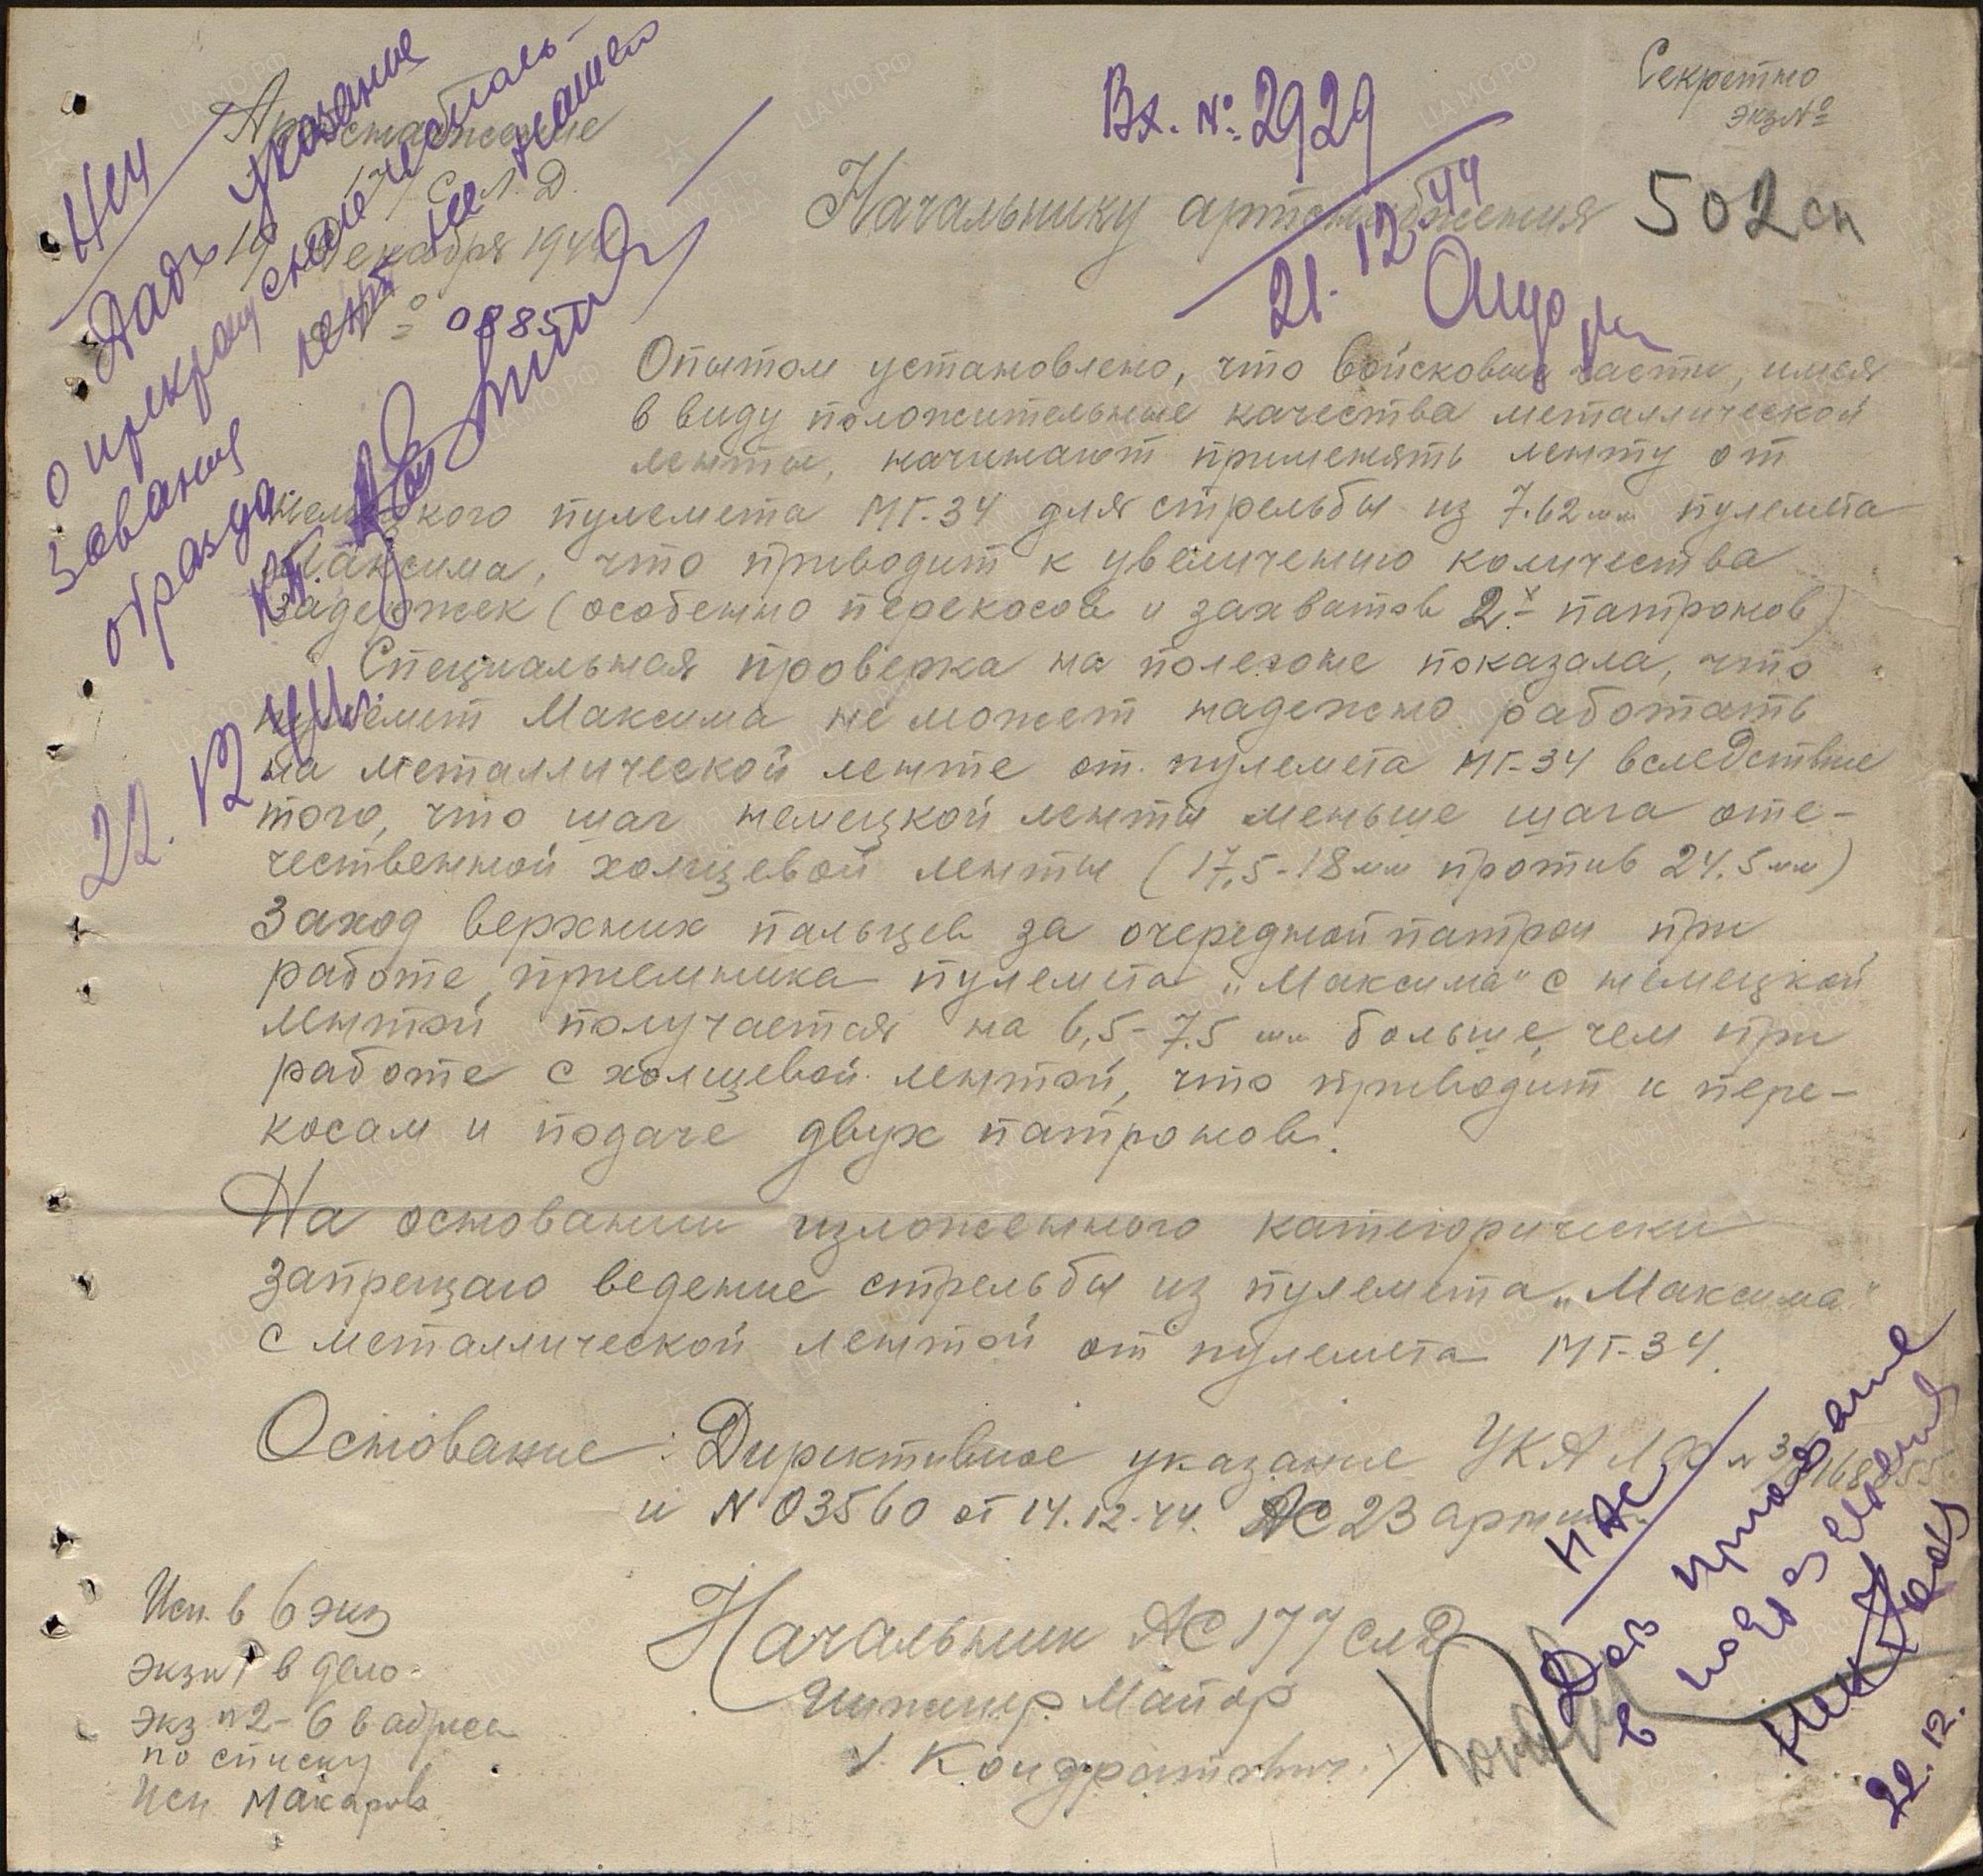 Секретно
экз №
Вх. № 2929
21.12.44
Артснабжение
177 С.Л.Д.
19 Декабря 1944
№ 0885
Начальнику артснабжения 502 сп
Опытом установлено, что войсковые части, имея
в виду положительные качества металлической
ленты, начинают применять ленту от
немецкого пулемета МГ-34 для стрельбы из 7.62 мм пулемета
Максима, что приводит к увеличению количества
задержек (особенно перекосов и захватов 2-х патронов)
Специальная проверка на полегоне показала, что
пулемет Максима не может надежно работать
на металлической ленте от пулемета МГ-34 вследствие
того, что шаг немецкой ленты меньше шага оте-
чественной холщевой ленты (17,5-18 мм против 24.5 мм)
Заход верхних пальцев за очередной патрон при
работе приемника пулемета „Максима" с немецкой
лентой получается на 6,5-7.5 мм больше, чем при
работе с холщевой лентой, что приводит к пере-
косам и подаче двух патронов.
На основании изложенного категорически
запрещаю ведение стрельбы из пулемета „Максима"
с металлической лентой от пулемета МГ-34.
Основание: Директивное указание УКАЛФ
и N 03560 от 14.12.44. АС 23 армии
Начальник АС 177 слд
Инженер Майор
Кондратович
Исп. в 6 экз
экз №1 в дело
экз №2-6 в адреса
по списку
Исп Макарова
Дать указание
о прекращении
образца
22.12.44
НАС
22.12.